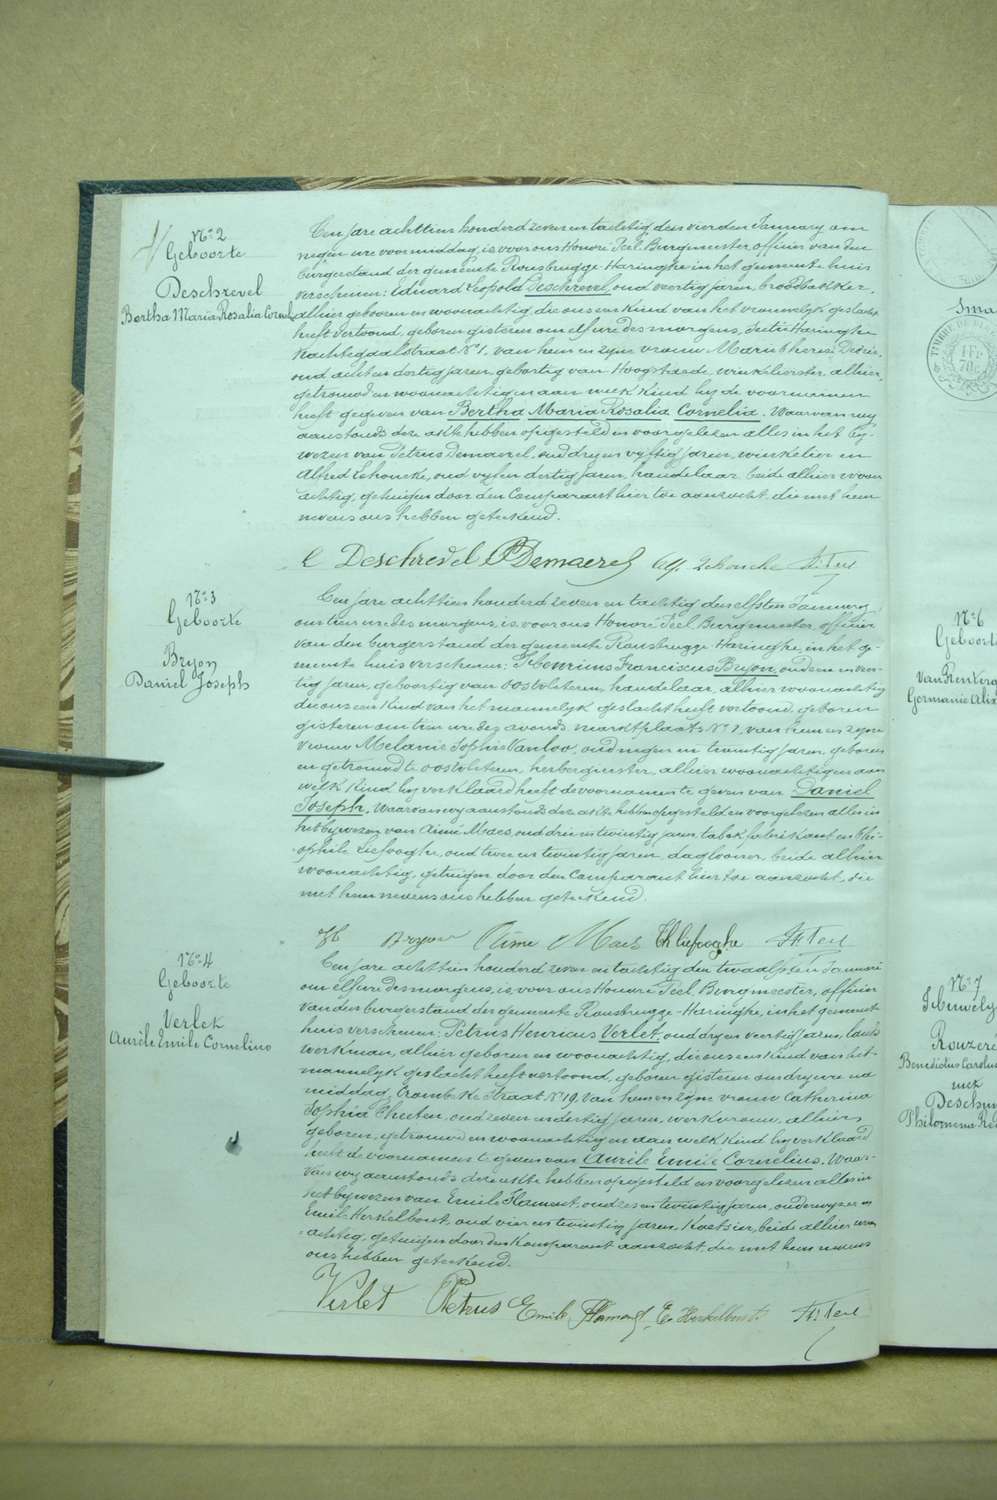 Nº 2
Geboorte
Deschrevel
Bertha Maria Rosalia Cornelia
Ten jare achttien honderd zeven en tachtig den vierden January om
negen ure voormiddag, is voor ons Honoré Peel Burgmeester, officier van den
burgerstand der gemeente Rousbrugge-Haringhe in het gemeente huis
verschenen: Eduard Leopold Deschrevel, oud veertig jaren, broodbakker,
alhier geboren en woonachtig, die ons een kind van het vrouwelyk geslacht
heeft vertoond, geboren gisteren om elf ure des morgens, sectie Haringhe
Nachtegaalstraat Nº 1. van hem en zyne vrouw Marie Therese
oud acht en dertig jaren, geboortig van Hoogstaede, winkelierster, alhier,
getrouwd en woonachtig en aan welk kind hy de voornamen
heeft gegeven van Bertha Maria Rosalia Cornelia. Waarvan wy
aanstonds deze akte hebben opgesteld en voorgelezen alles in het by-
wezen van Petrus Demaerel, oud dry en vyftig jaren, winkelier en
Alfred Schoucke, oud vyf en dertig jaren, handelaar beide alhier woon-
achtig, getuigen door den Comparant hier toe aanzocht, die met hem
nevens ons hebben geteekend.
E Deschrevel P Demaerel Alf. Schoucke H. Peel
Nº 3
Geboorte
Bryon
Daniel Joseph
Ten jare achttien honderd zeven en tachtig den elfsten January
om tien ure des morgens, is voor ons Honoré Peel Burgmeester, officier
van den burgerstand der gemeente Rousbrugge-Haringhe, in het ge-
meente huis verschenen: Henricus Franciscus Bryon, oud een en veer-
tig jaren, geboortig van Oostvleteren, handelaar, alhier woonachtig
die ons een kind van het mannelyk geslacht heeft vertoond, geboren
gisteren om tien ure des avonds, marktplaats Nº 7, van hem en zyne
vrouw Melanie Sophie Vanloo, oud negen en twintig jaren, geboren
en getrouwd te Oostvleteren, herbergierster, alhier woonachtig en aan
welk kind hy verklaard heeft de voornamen te geven van Daniel
Joseph. Waarvan wy aanstonds deze akte hebben opgesteld en voorgelezen alles in
het bywezen van Aimé Maes, oud drie en twintig jaren, tabak fabrikant en The-
ophile Liefooghe, oud twee en twintig jaren, daglooner, beide alhier
woonachtig, getuigen door den Comparant hier toe aanzocht, die
met hem nevens ons hebben geteekend.
H Bryon Aimé Maes Th Liefooghe H. Peel
Nº 4
Geboorte
Verlet
Aurèle Emile Cornelius
Ten jare achttien honderd zeven en tachtig den twaalfsten January
om elf ure des morgens, is voor ons Honoré Peel Burgmeester, officier
van den burgerstand der gemeente Rousbrugge-Haringhe, in het gemeente
huis verschenen: Petrus Henricus Verlet, oud dry en veertig jaren,
werkman, alhier geboren en woonachtig, die ons een kind van het
mannelyk geslacht heeft vertoond, geboren gisteren om dry ure na
middag, Crombeke Straat Nº 19, van hem en zyne vrouw Catherina
Sophia oud zeven en dertig jaren, werkvrouw, alhier
geboren, getrouwd en woonachtig en aan welk kind hy verklaard
heeft de voornamen te geven van Aurèle Emile Cornelius. Waar-
van wy aanstonds deze akte hebben opgesteld en voorgelezen alles in
het bywezen van Emile Flamant, oud zes en twintig jaren, onderwyzer en
Emile Herkelbout, oud vier en twintig jaren, Koetsier, beide alhier woon-
achtig, getuigen door den Komparant aanzocht, die met hem nevens
ons hebben geteekend.
Verlet Petrus Emile Flamant E. Herkelbout H. Peel
TIMBRE DE
1 FR
70 C
Nº 6
Geboorte
Germanie Alix
Nº 7
Rouzere
Benedictus Carolus
met
Philomena